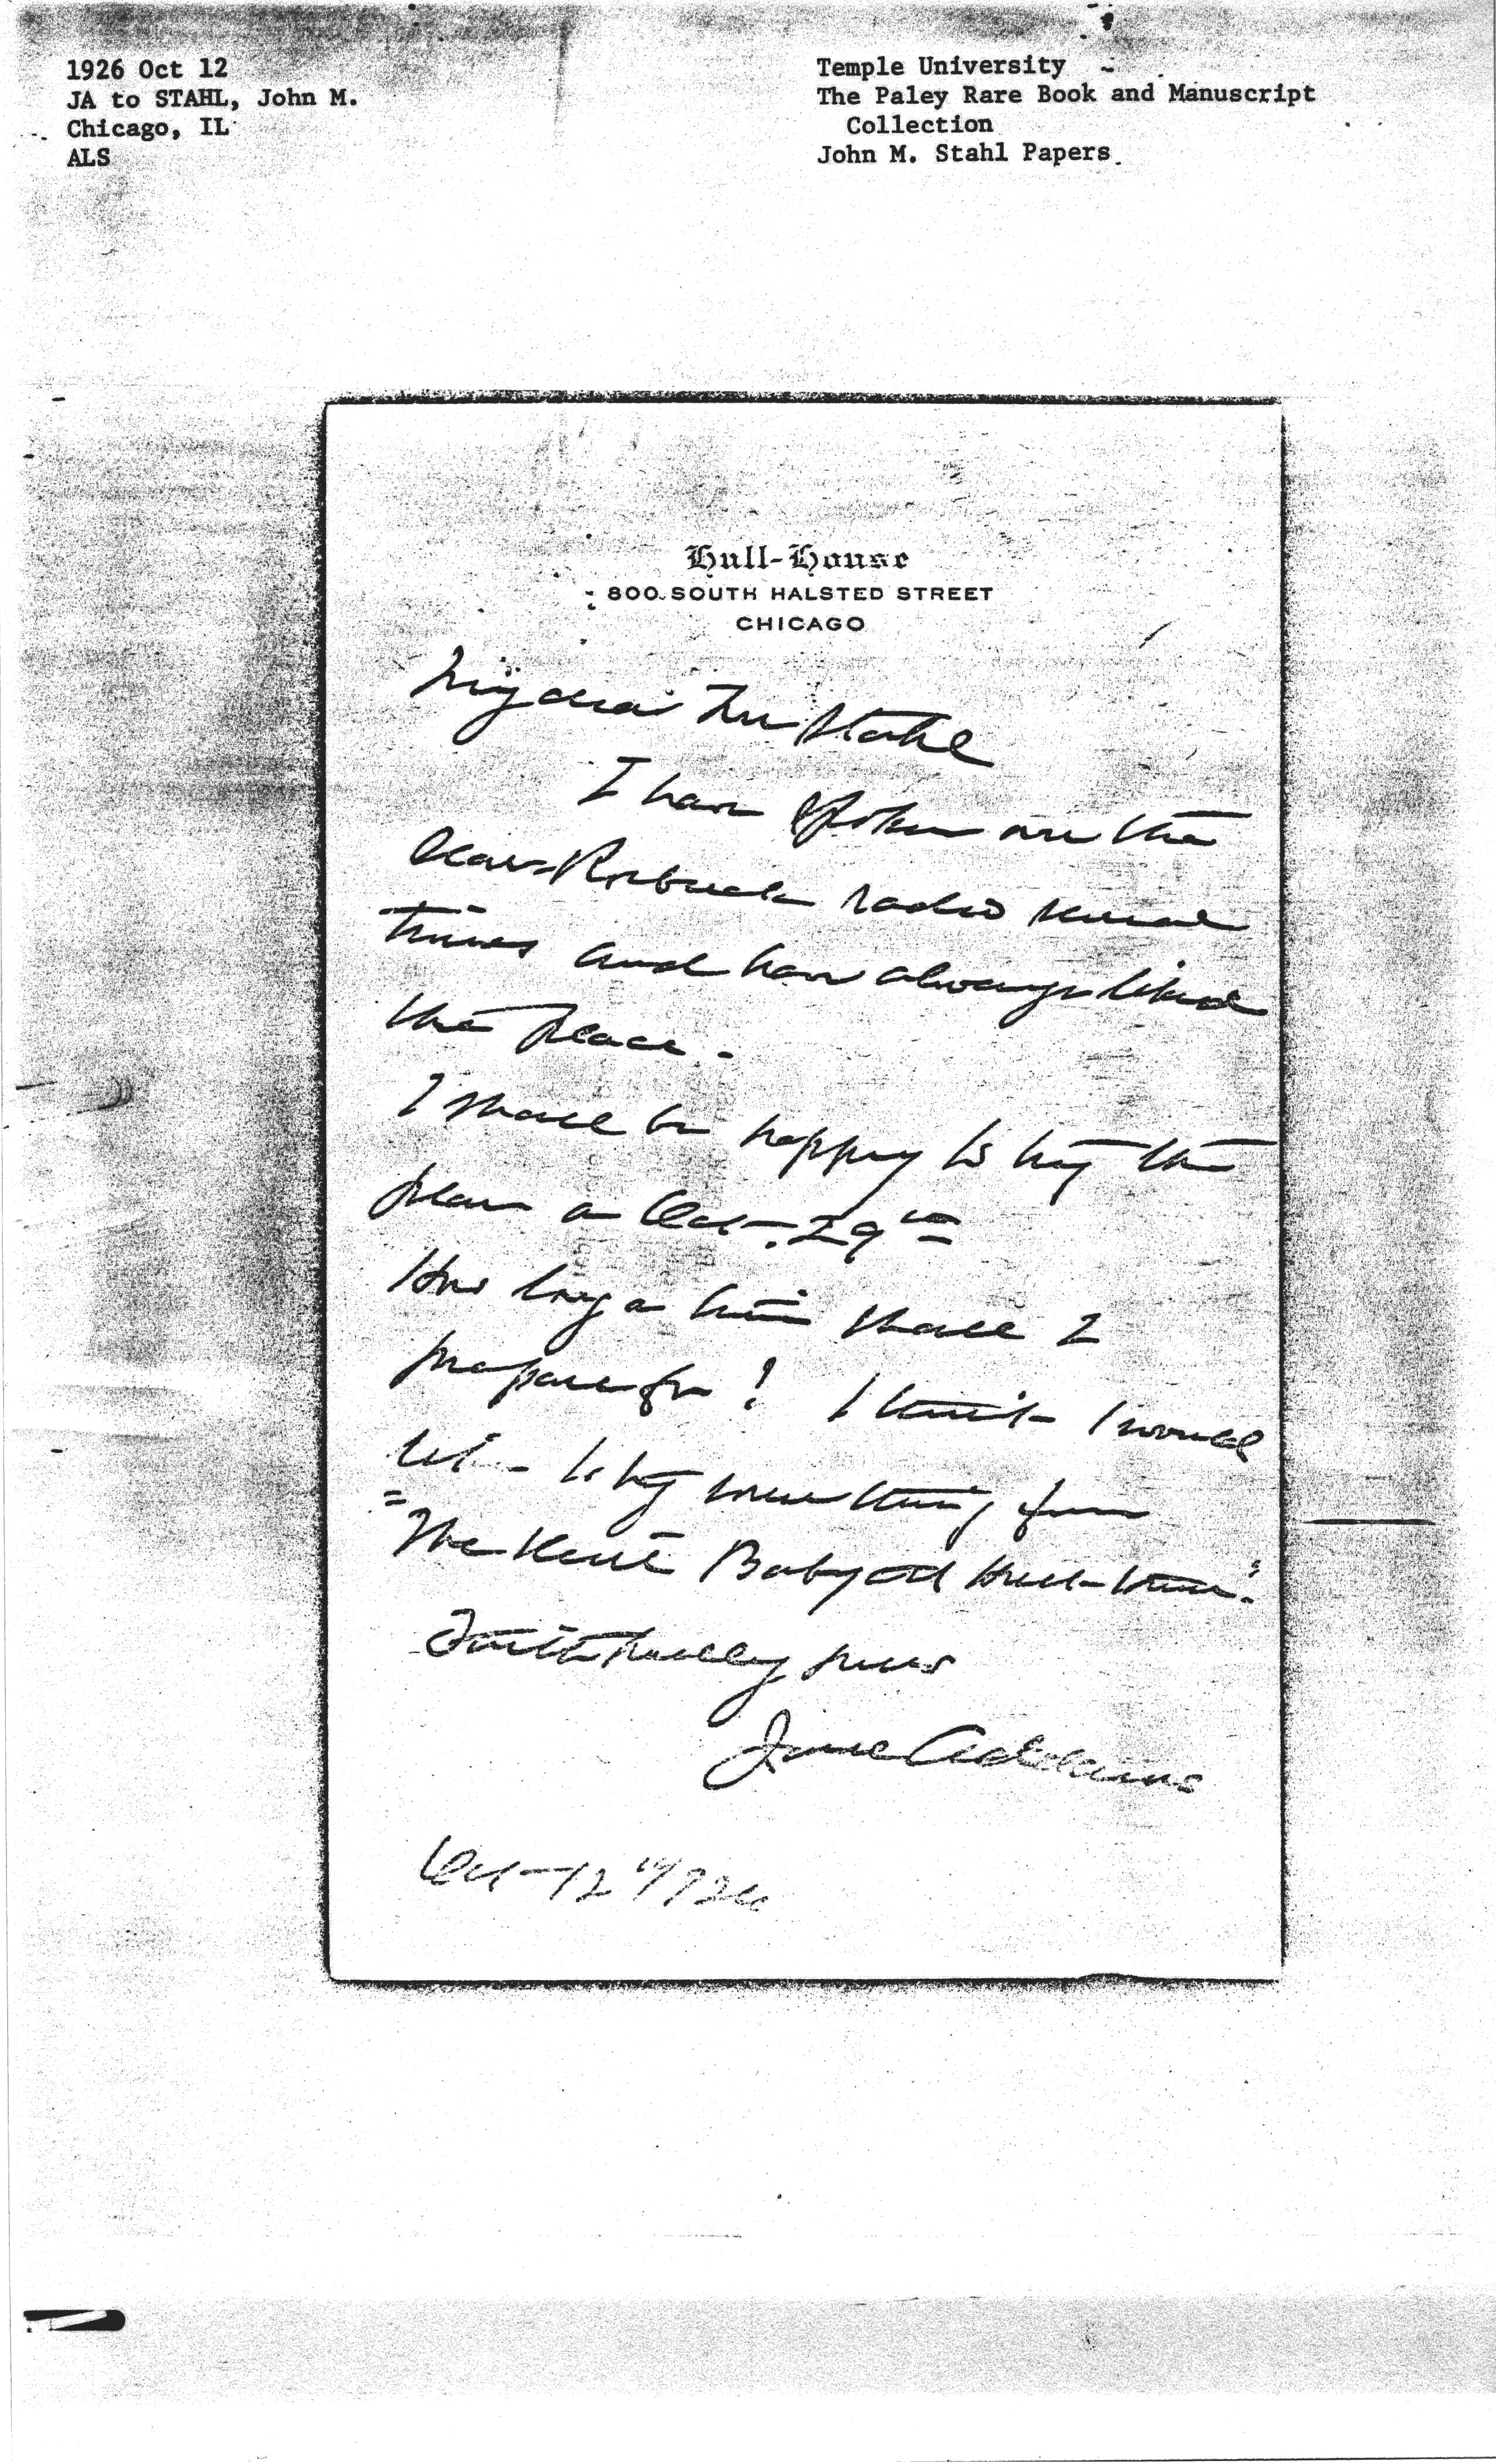 1926 Oct 12
JA to STAHL, John M.
Chicago, IL
ALS
Temple University
The Paley Rare Book and Manuscript
Collection
John M. Stahl Papers
Hull-House
800 SOUTH HALSTED STREET
CHICAGO
My dear Mr Stahl
I have spoken on the
Sears Roebuck radio several
times and have always liked
the place.
I shall be happy to try the
plan on Oct. 29th
How long a time shall I
prepare for? I think I would
like to try something from
"The Devil Baby at Hull-House."
Faithfully yours
Jane Addams
Oct 12" 1926